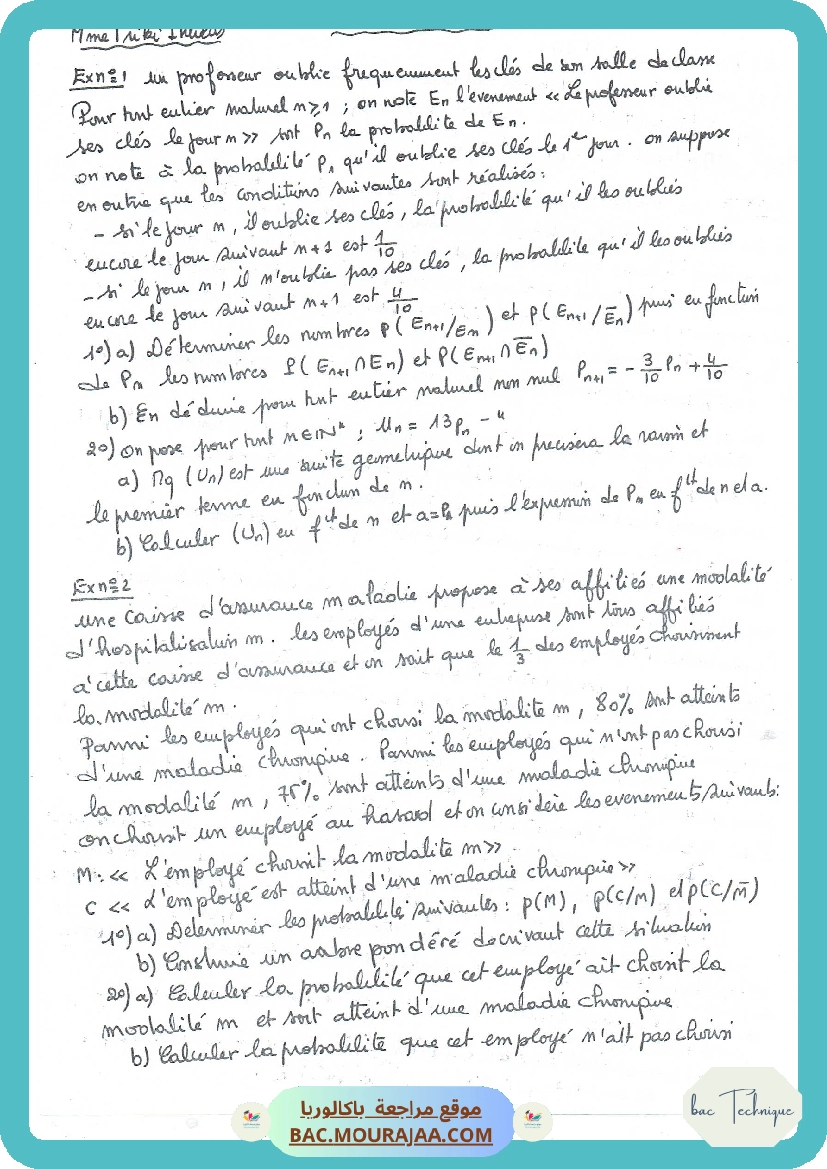 Mme Triki Ihvers
Exn°1 un professeur oublie frequemment les clés de son salle de classe
Pour tout entier naturel n⩾1 ; on note En l'évenement << Le professeur oublie
ses clés le jour n >> soit Pn la probabilite de En.
on note a la probabilité P1 qu'il oublie ses clés le 1er jour. on suppose
en outre que les conditions suivantes sont réalisés :
- si le jour n, il oublie ses clés, la probabilité qu'il les oubliés
encore le jour suivant n+1 est 1/10
- si le jour n, il n'oublie pas ses clés, la probabilite qu'il les oubliés
encore le jour suivant n+1 est 4/10
1°) a) Déterminer les nombres p(En+1/En) et p(En+1/Ēn) puis en fonction
de Pn les nombres P(En+1∩En) et P(En+1∩Ēn)
b) En déduire pour tout entier naturel non nul Pn+1 = -3/10 Pn + 4/10
2°) on pose pour tout n∈IN* ; Un = 13Pn - 4
a) Mq (Un) est une suite geometrique dont on precisera la raison et
le premier terme en fonction de n.
b) Calculer (Un) en fct de n et a=P1 puis l'expression de Pn en fct de n et a.
Exn°2
une caisse d'assurance maladie propose à ses affiliés une modalité
d'hospitalisation m. les employés d'une entreprise sont tous affiliés
à cette caisse d'assurance et on sait que le 1/3 des employés choisissent
la modalité m.
Parmi les employés qui ont choisi la modalité m, 80% sont atteints
d'une maladie chronique. Parmi les employés qui n'ont pas choisi
la modalité m, 75% sont atteints d'une maladie chronique
on choisit un employé au hasard et on considère les evenements suivants:
M : << L'employé choisit la modalité m >>
C << L'employé est atteint d'une maladie chronique >>
1°) a) Determiner les probabilités suivantes : p(M), p(C/M) et p(C/M̄)
b) Construire un arbre pondéré decrivant cette situation
2°) a) Calculer la probabilité que cet employé ait choisit la
modalité m et soit atteint d'une maladie chronique
b) Calculer la probabilité que cet employé n'ait pas choisi
موقع مراجعة باكالوريا
BAC.MOURAJAA.COM
bac Technique